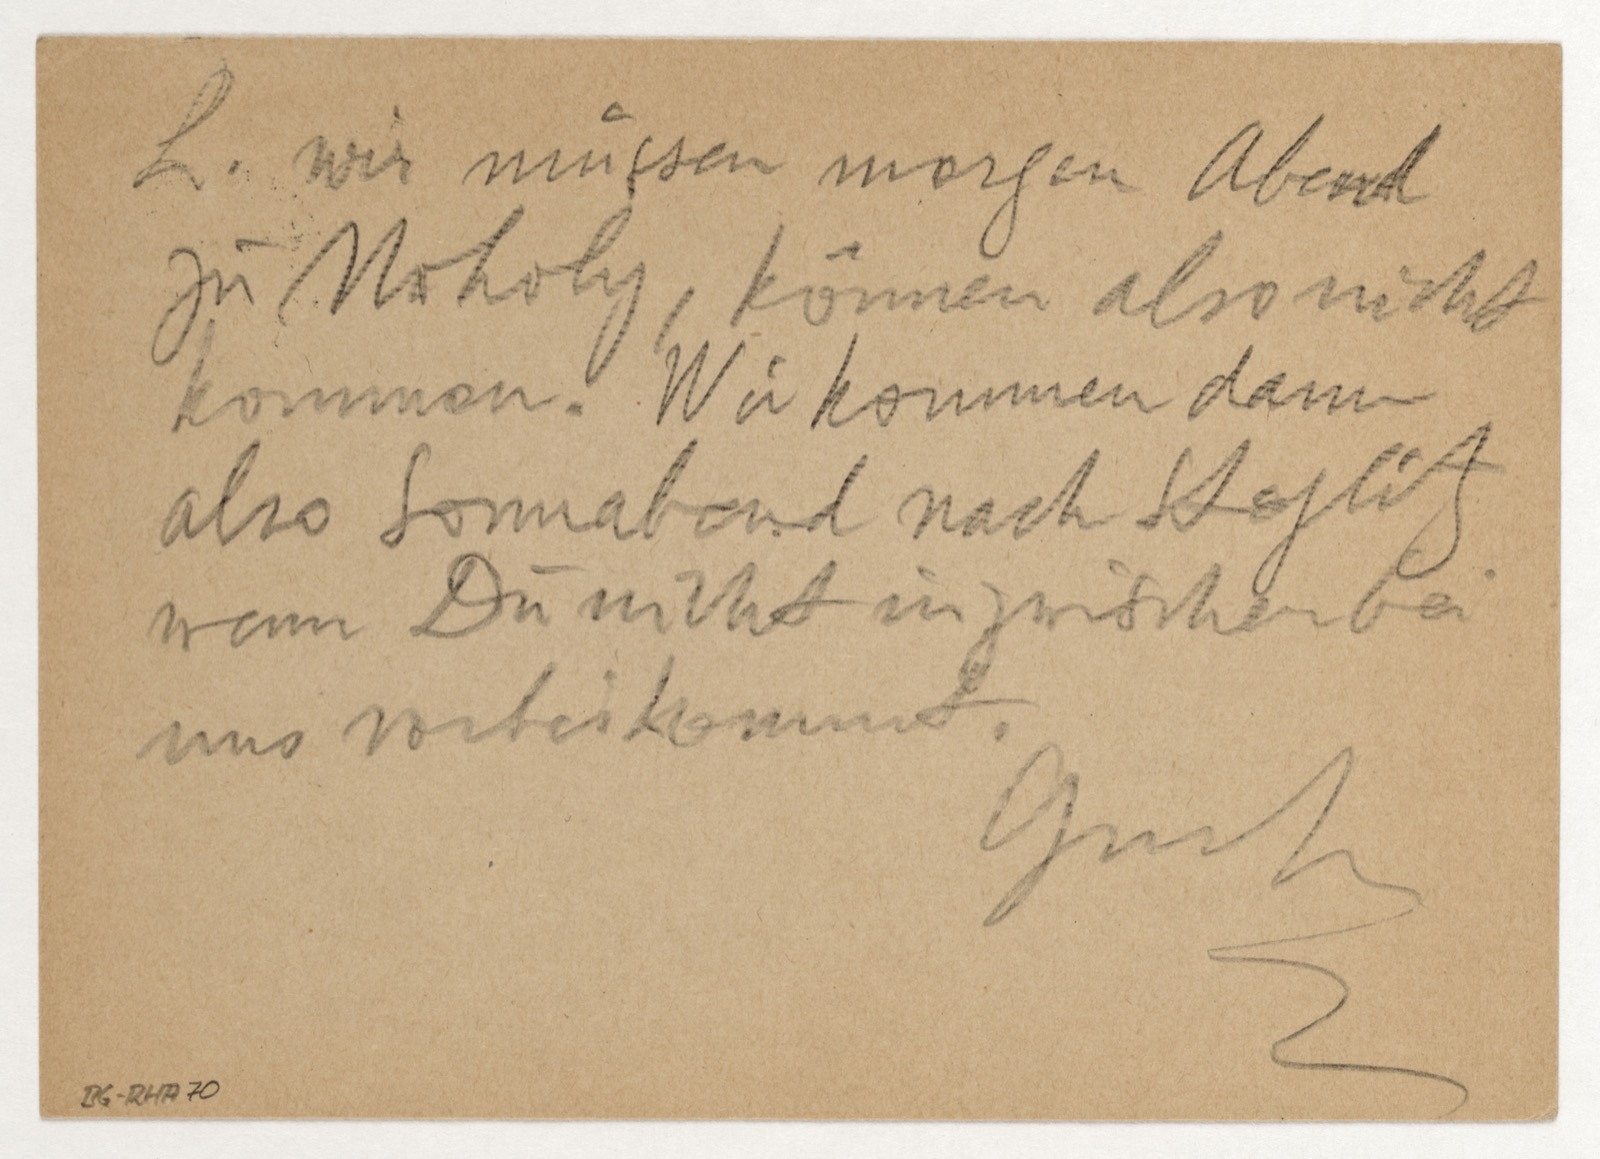 L. wir müssen morgen Abend
zu Moholy, können also nicht
kommen. Wir kommen dann
also Sonnabend nach Steglitz
wenn Du nicht inzwischen bei
uns vorbeikommst.
BG-RHA 70